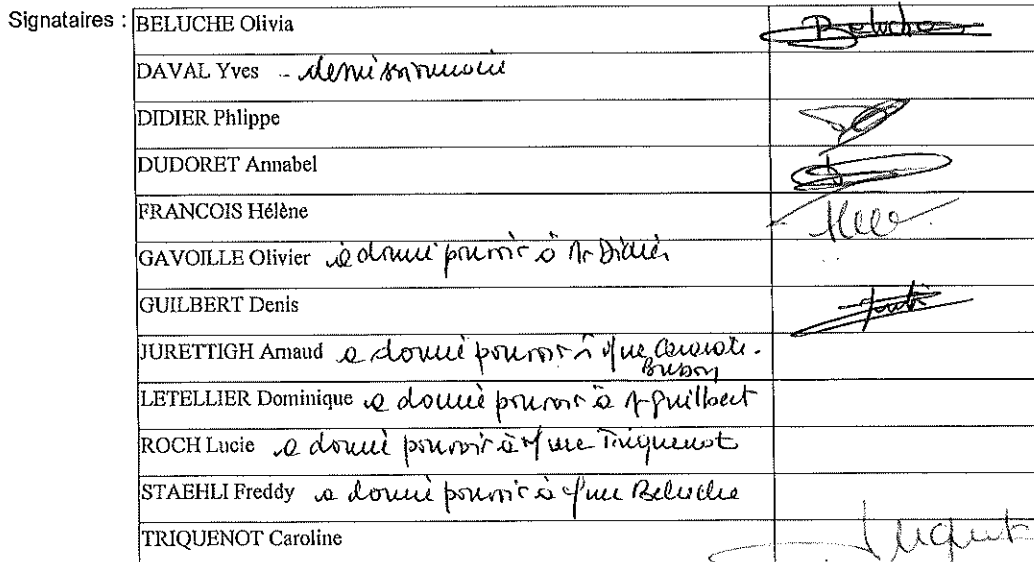 Signataires :
BELUCHE Olivia Beluche
DAVAL Yves - demissionnaire
DIDIER Phlippe
DUDORET Annabel
FRANCOIS Hélène
GAVOILLE Olivier a donné pouvoir à Mr Didier
GUILBERT Denis
JURETTIGH Arnaud a donné pouvoir à Mme
LETELLIER Dominique a donné pouvoir à Mr Guilbert
ROCH Lucie a donné pouvoir à Mme Triquenot
STAEHLI Freddy a donné pouvoir à Mme Beluche
TRIQUENOT Caroline